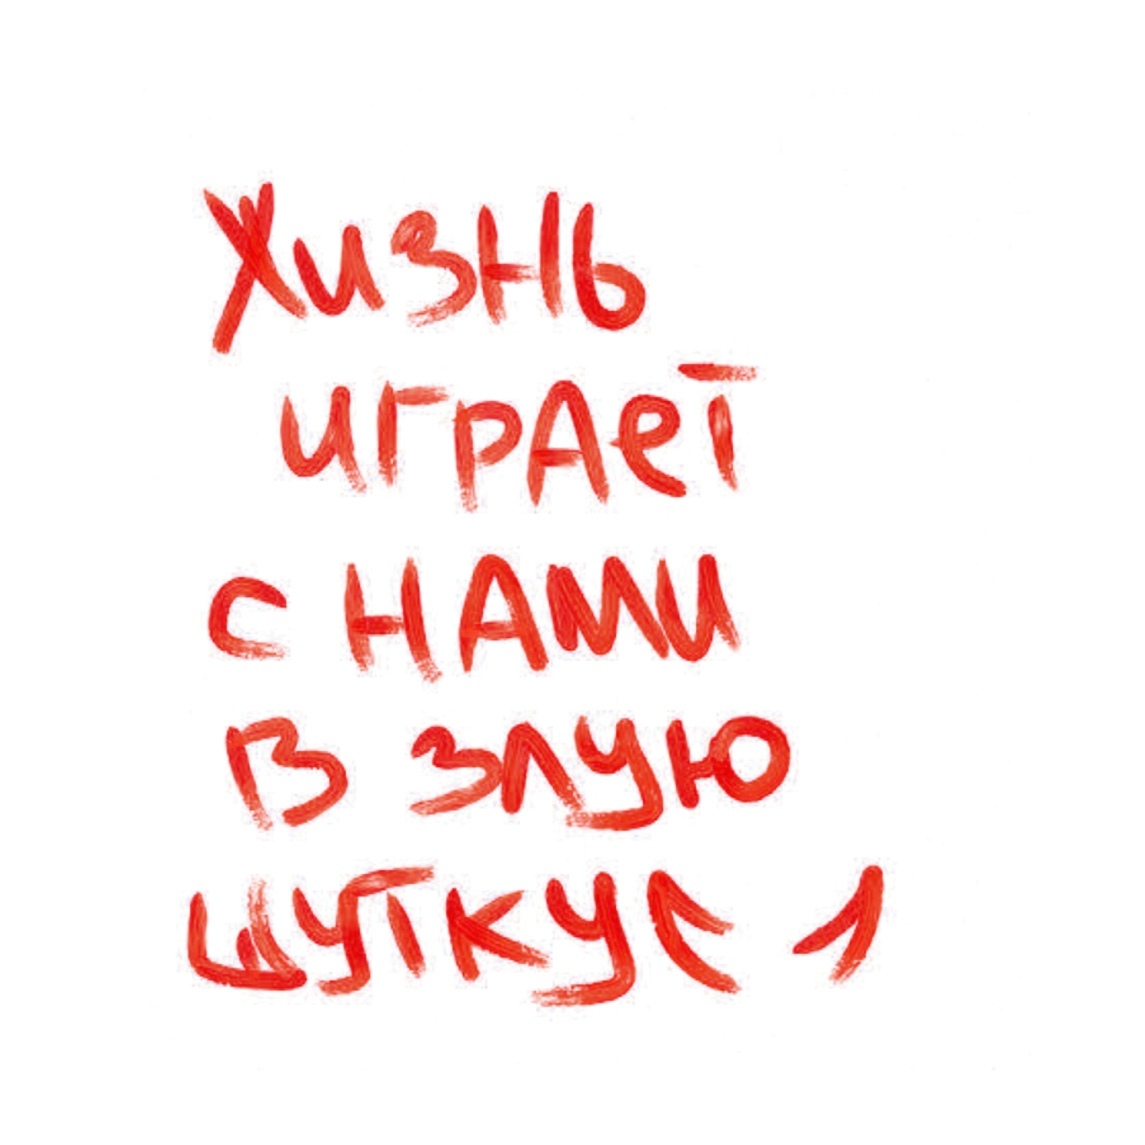 жизнь
играет
с нами
в злую
шутку